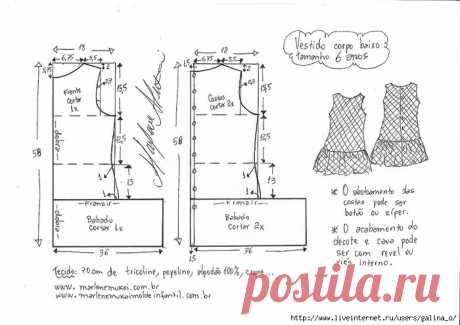 Vestido corpo baixo
tamanho 6 anos
18
6,75
5,5
2
15,5
Frente
cortar
1x
dobra
12,5
58
1
1
13
Franzir
dobra
Babado
cortar 1x
36
18
6,75
5,5
2
15,5
Costas
cortar 2x
12,5
58
1
1
13
Franzir
Babado
Cortar 2x
1,5
36
Marlene Mukai
* O abotamento das
costas pode ser
botão ou zíper.
* O acabamento do
decote e cava pode
ser com revel ou
viés interno.
Tecido: 70cm de tricoline, popeline, algodão 100%,
www.marlenemukai.com.br
www.marlenemukaimoldeinfantil.com.br
postila.ru
http://www.liveinternet.ru/users/galina_o/